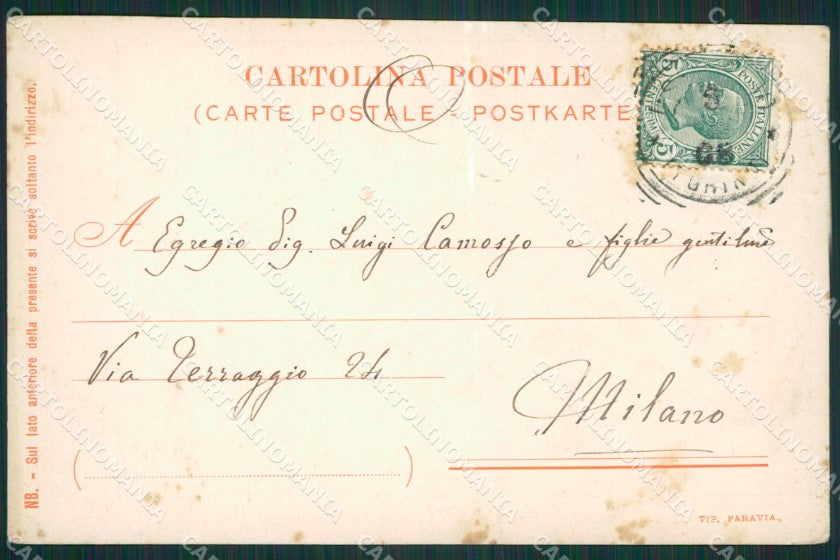 CARTOLINA POSTALE
(CARTE POSTALE - POSTKARTE
POSTE ITALIANE
5 5
TORINO
A Egregio Sig. Luigi Camosso e figlie gentilme
Via Terraggio 24
Milano
NB. - Sul lato anteriore della presente si scrive soltanto l'indirizzo.
TIP. PARAVIA.
CARTOLINOMANIA